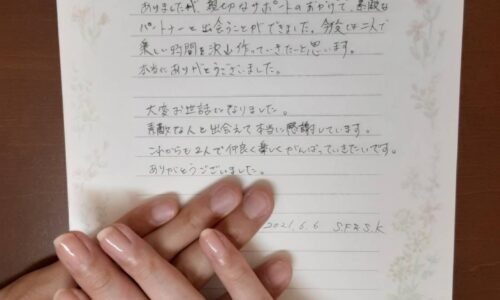 ありましたが、親切なサポートのおかげで、素敵な
パートナーと出会うことができました。今後は二人で
楽しい時間を沢山作っていきたいと思います。
本当にありがとうございました。
大変お世話になりました。
素敵な人と出会えて本当に感謝しています。
これからも2人で仲良く楽しくがんばっていきたいです。
ありがとうございました。
2021.6.6 S.F & S.K